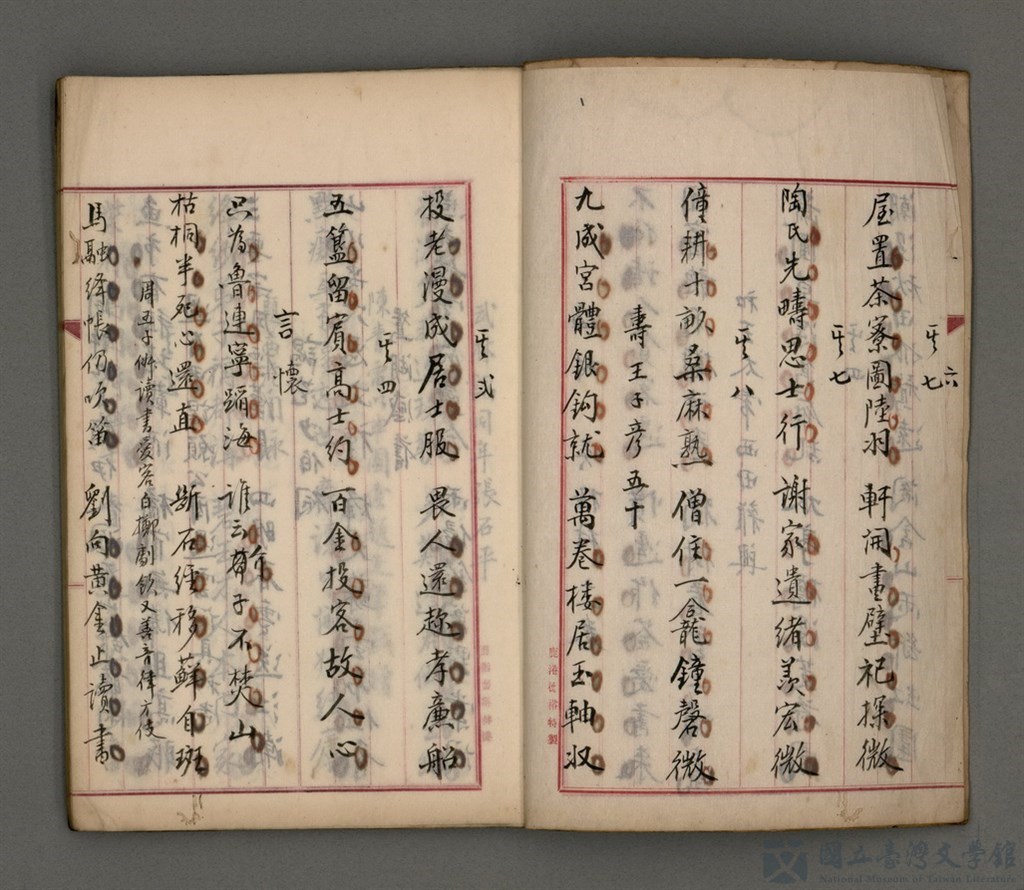 其六
七
屋置茶寮圖陸羽 軒開畫壁祀探微
其七
陶氏先疇思士行 謝家遺緒羨宏微
其八
僮耕十畝桑麻熟 僧住一龕鐘磬微
壽王子彥五十
九成宮體銀鈎就 萬卷楼居玉軸収
其弍
投老漫成居士服 畏人還趂孝廉船
其四
五簋留賓高士約 百金投客故人心
言懷
只為魯連寧蹈海 誰云介子不焚山
枯桐半死心還直 断石經移蘚自斑
周五子俶讀書愛客白擲劇飲又善音律方伎
馬融絳帳仍吹笛 劉向黃金止讀書
國立臺灣文學館
National Museum of Taiwan Literature